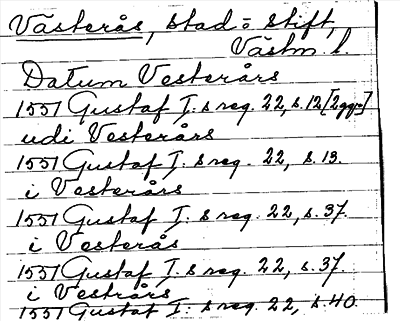 Västerås, stad o stift,
Västm. l.
Datum Vesterårs
1551 Gustaf I:s reg. 22, s. 12 [2 ggr]
udi Vesterårs
1551 Gustaf I:s reg. 22, s. 13.
i Vesterårs
1551 Gustaf I:s reg. 22, s. 37.
i Vesterås
1551 Gustaf I:s reg. 22, s. 37.
i Vestrårs
1551 Gustaf I:s reg. 22, s. 40